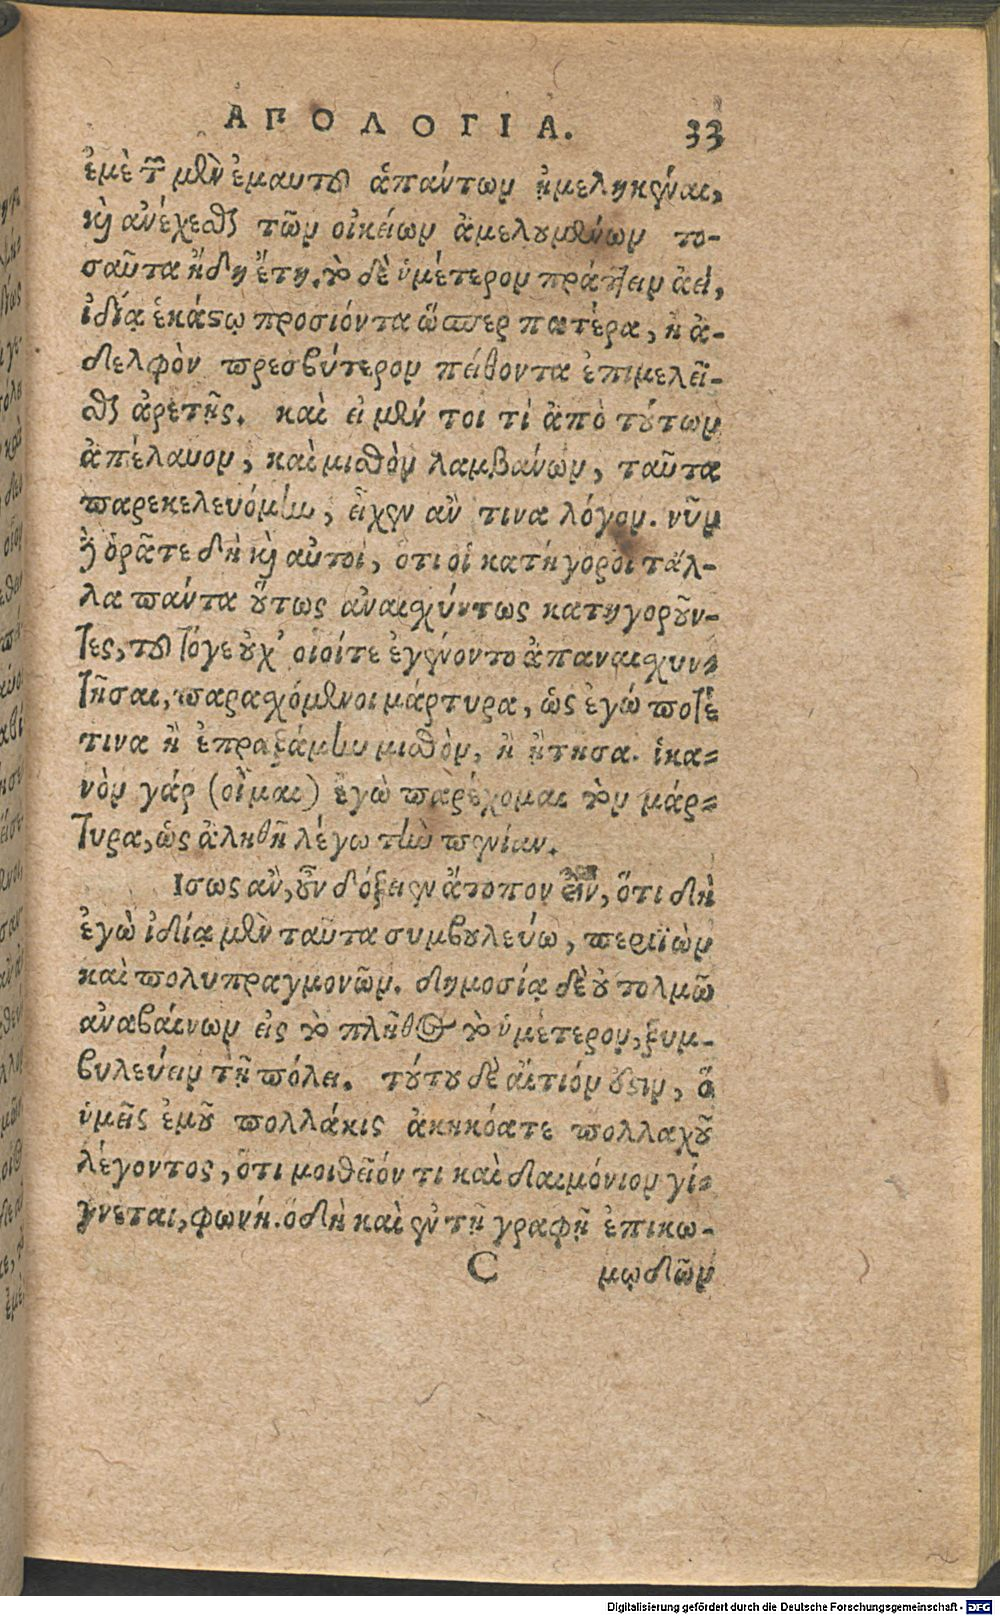 ΑΠΟΛΟΓΙΑ. 33
ἐμὲ τῶν μὲν ἐμαυτοῦ ἁπάντων ἠμεληκέναι,
καὶ ἀνέχεσθαι τῶν οἰκείων ἀμελουμένων το-
σαῦτα ἤδη ἔτη. τὸ δὲ ὑμέτερον πράττειν ἀεὶ,
ἰδίᾳ ἑκάστῳ προσιόντα ὥσπερ πατέρα, ἢ ἀ-
δελφὸν πρεσβύτερον πείθοντα ἐπιμελεῖ-
σθαι ἀρετῆς. καὶ εἰ μέν τοι τὶ ἀπὸ τούτων
ἀπέλαυον, καὶ μισθὸν λαμβάνων, ταῦτα
παρεκελευόμην, εἶχεν ἄν τινα λόγον. νῦν
δὲ ὁρᾶτε δὴ καὶ αὐτοὶ, ὅτι οἱ κατήγοροι τἄλ-
λα πάντα οὕτως ἀναισχύντως κατηγοροῦν-
τες, τοῦτό γε οὐχ' οἷοί τε ἐγένοντο ἀπαναισχυν-
τῆσαι, παρασχόμενοι μάρτυρα, ὡς ἐγώ ποτέ
τινα ἢ ἐπραξάμην μισθὸν, ἢ ᾔτησα. ἱκα-
νὸν γάρ (οἶμαι) ἐγὼ παρέχομαι τὸν μάρ-
τυρα, ὡς ἀληθῆ λέγω τὴν πενίαν.
Ισως ἂν, οὖν δόξειεν ἄτοπον εἶναι, ὅτι δὴ
ἐγὼ ἰδίᾳ μὲν ταῦτα συμβουλεύω, περιϊὼν
καὶ πολυπραγμονῶν. δημοσίᾳ δὲ οὐ τολμῶ
ἀναβαίνων εἰς τὸ πλῆθος τὸ ὑμέτερον, ξυμ-
βουλεύειν τῇ πόλει. τούτου δὲ αἴτιόν ἐστιν, ὃ
ὑμεῖς ἐμοῦ πολλάκις ἀκηκόατε πολλαχοῦ
λέγοντος, ὅτι μοι θεῖόν τι καὶ δαιμόνιον γί-
γνεται, φωνή. ὃ δὴ καὶ ἐν τῇ γραφῇ ἐπικω-
C μῳδῶν
Digitalisierung gefördert durch die Deutsche Forschungsgemeinschaft - DFG